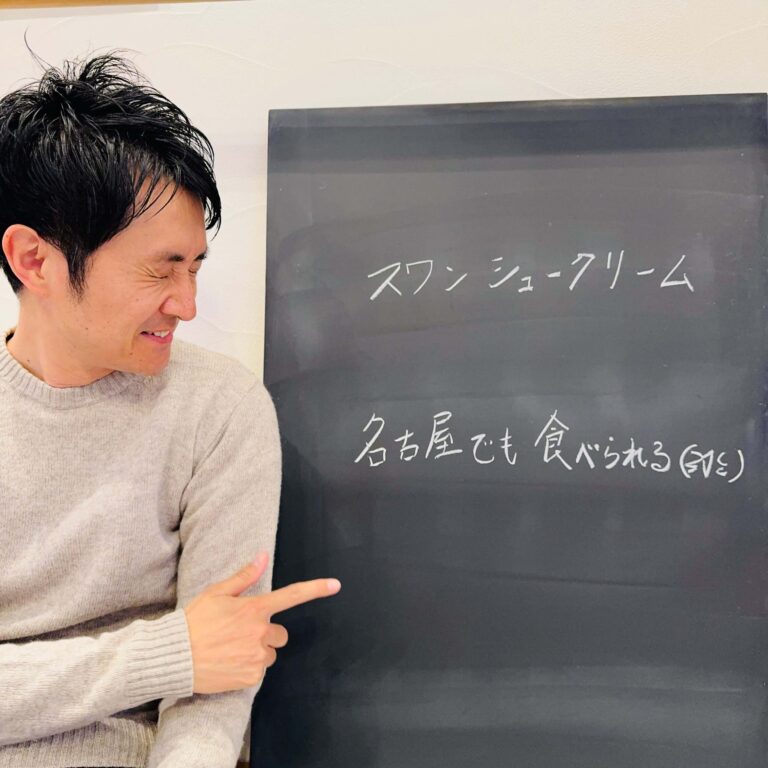 スワン シュークリーム
名古屋でも 食べられる